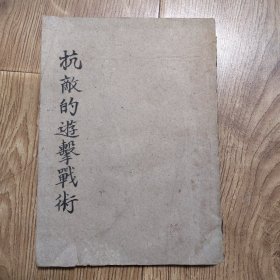 抗敵的遊擊戰術